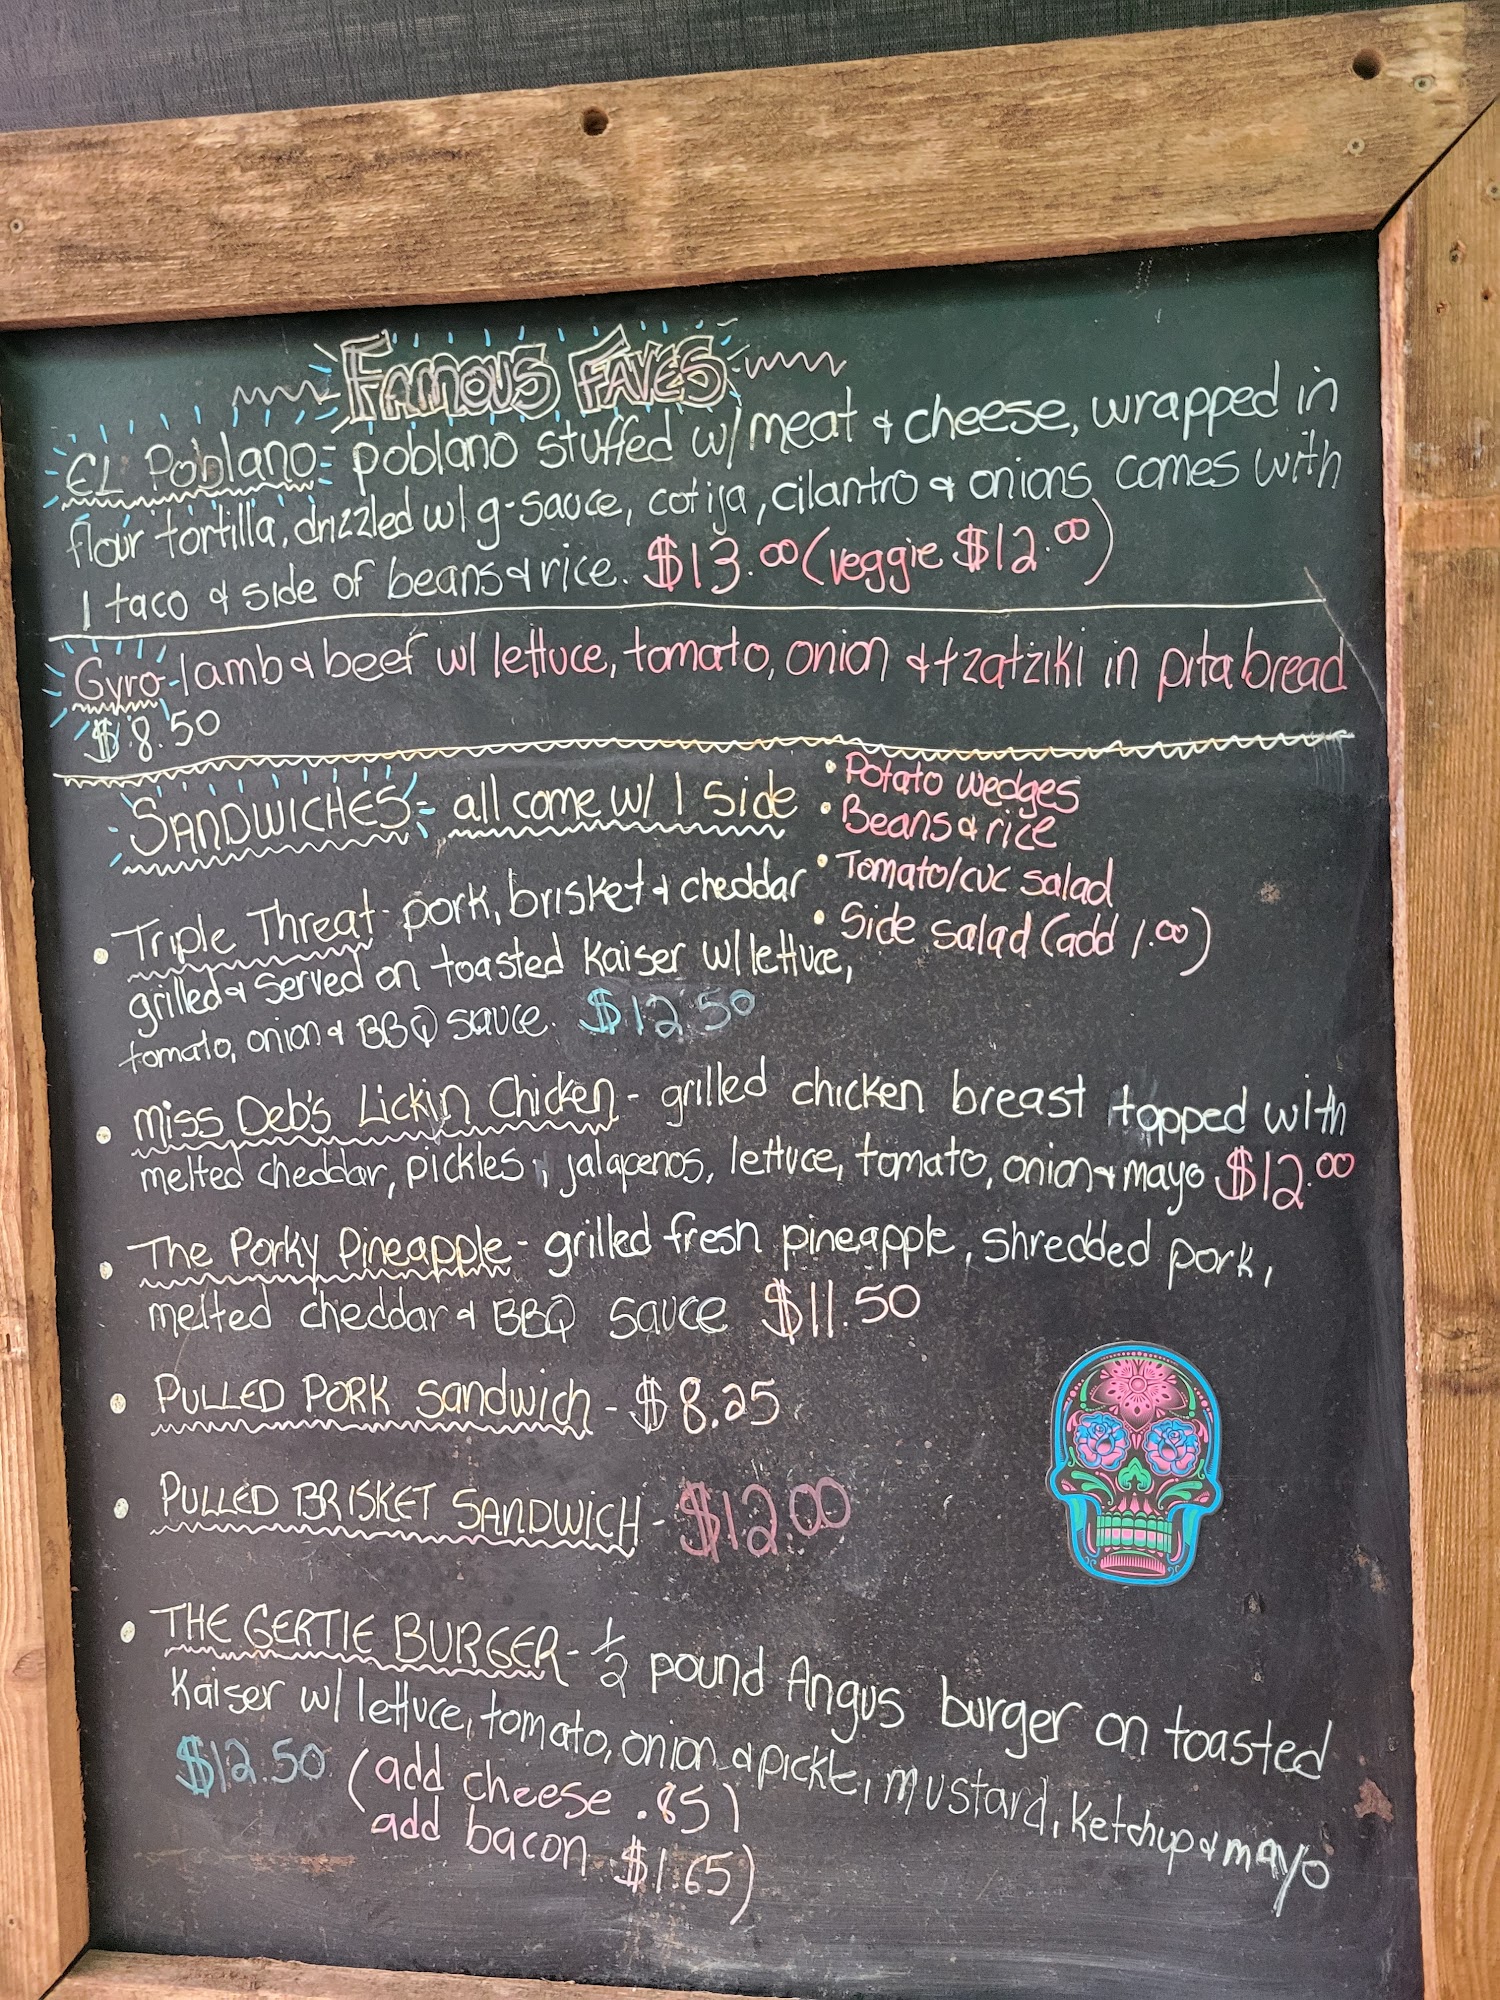 Famous Faves
El Poblano - poblano stuffed w/ meat & cheese, wrapped in
flour tortilla, drizzled w/ g-sauce, cotija, cilantro & onions comes with
1 taco & side of beans & rice. $13.00 (veggie $12.00)
Gyro - lamb & beef w/ lettuce, tomato, onion & tzatziki in pita bread
$8.50
SANDWICHES - all come w/ 1 side
• Potato wedges
• Beans & rice
• Tomato/cuc salad
• Side salad (add 1.00)
• Triple Threat - pork, brisket & cheddar
grilled & served on toasted Kaiser w/ lettuce,
tomato, onion & BBQ sauce. $12.50
• Miss Deb's Lickin Chicken - grilled chicken breast topped with
melted cheddar, pickles, jalapenos, lettuce, tomato, onion & mayo $12.00
• The Porky Pineapple - grilled fresh pineapple, shredded pork,
melted cheddar & BBQ sauce $11.50
• PULLED PORK Sandwich - $8.25
• PULLED BRISKET SANDWICH - $12.00
• THE GERTIE BURGER - 1/2 pound Angus burger on toasted
Kaiser w/ lettuce, tomato, onion & pickle, mustard, ketchup & mayo
$12.50 (add cheese .85)
add bacon $1.65)